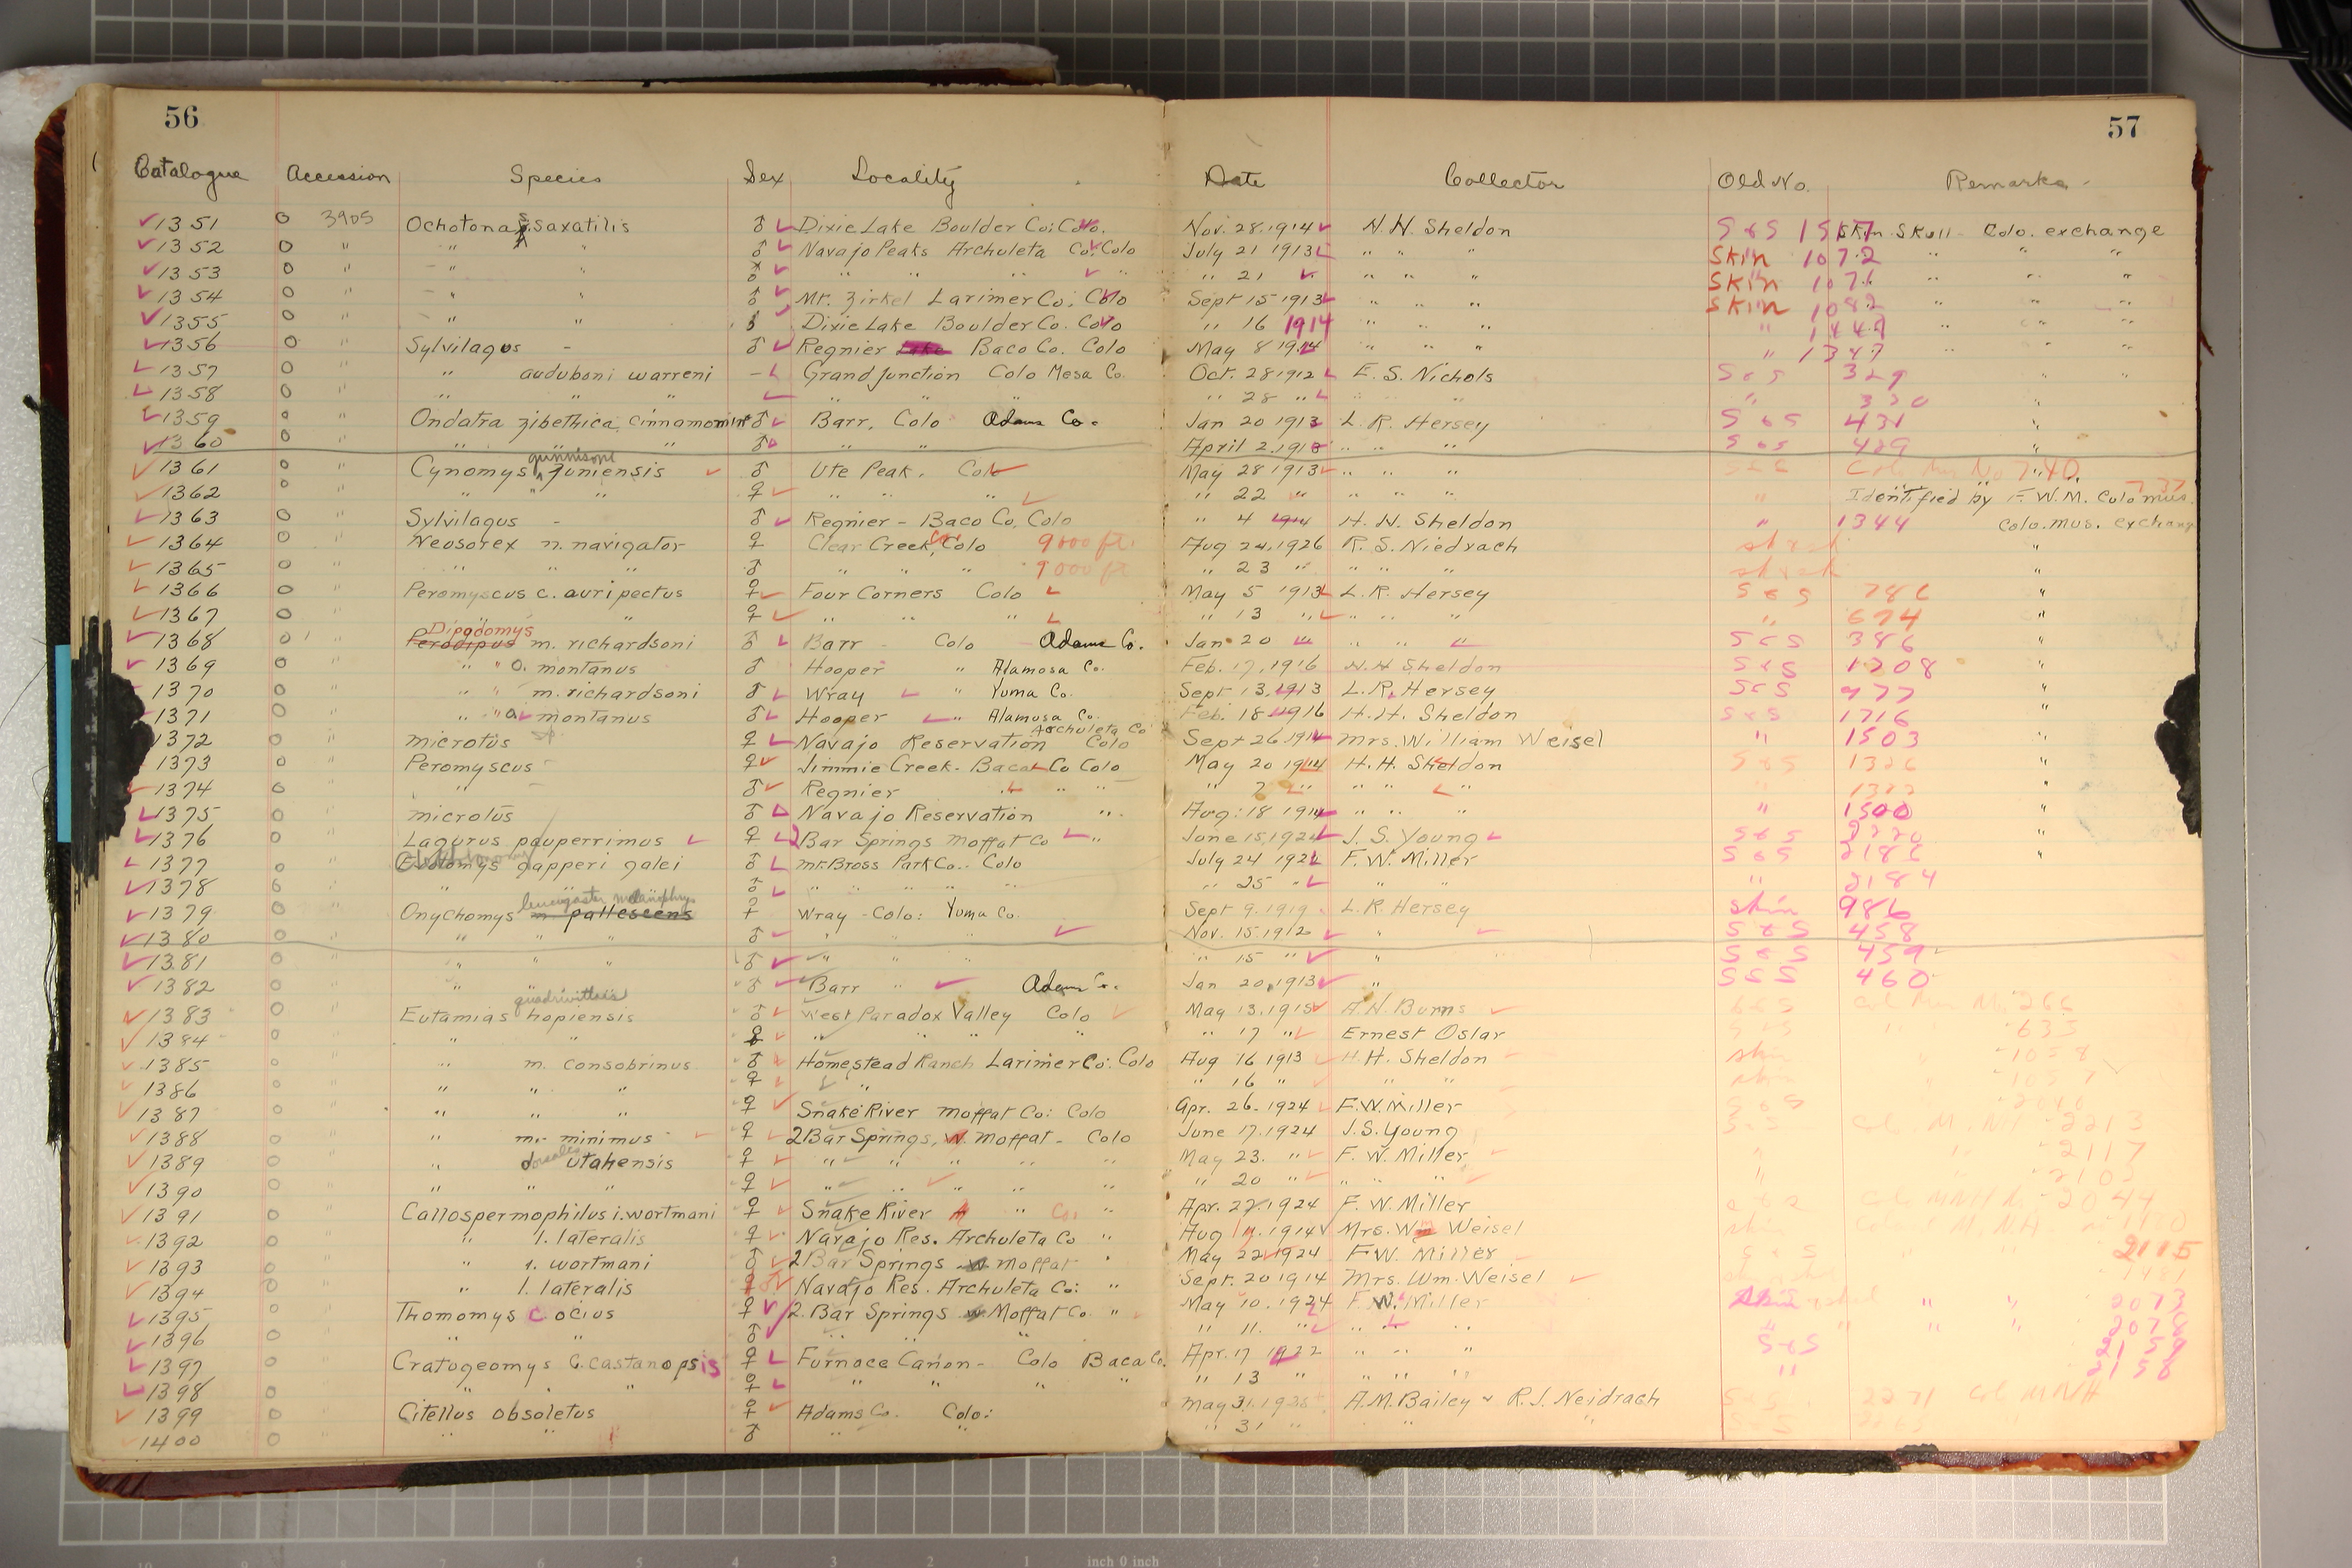 56
57
Catalogue Accession Species Sex Locality Date Collector Old No. Remarks
1351 0 3905 Ochotona s. saxatilis ♂ Dixie Lake Boulder Co: Colo. Nov. 28.1914 H.H. Sheldon S & S Skin Skull - Colo. exchange
1352 0 " " " ♂ Navajo Peaks Archuleta Co. Colo July 21 1913 " " " Skin 1072 " " "
1353 0 " " " " " " " " 21 " " " Skin 1076 " " "
1354 0 " " " ♂ Mt. Zirkel Larimer Co; Colo Sept 15 1913 " " " Skin 1082 " " "
1355 0 " " " Dixie Lake Boulder Co. Colo " 16 1914 " " " " " "
1356 0 " Sylvilagus - ♂ Regnier Lake Baco Co. Colo May 8 1914 " " " " 1347 " " "
1357 0 " " auduboni warreni - Grand Junction Colo Mesa Co. Oct. 28 1912 E. S. Nichols S & S 329 " "
1358 0 " " " " " " " 28 " " " " 330 "
1359 0 " Ondatra zibethica cinnamomin ♂ Barr, Colo Adams Co. Jan 20 1913 L. R. Hersey S & S 431 "
1360 0 " " " " ♂ " " April 2.1913 " " " S & S 429 "
1361 0 " Cynomys gunnisoni zuniensis ♂ Ute Peak, Colo May 28 1913 " " " S & S Colo Mus No 740
1362 0 " " " " ♀ " " " " 22 " " " " " Identified by F. W. M. Colo mus. 737
1363 0 " Sylvilagus - ♂ Regnier - Baco Co. Colo " 4 1914 H. H. Sheldon " 1344 Colo. mus. exchang
1364 0 " Neosorex n. navigator ♀ Clear Creek, Co. Colo 9000 ft. Aug 24, 1926 R. S. Niedrach "
1365 0 " " " " ♂ " " " 9000 ft " 23 " " " " "
1366 0 " Peromyscus c. auripectus ♀ Four Corners Colo May 5 1913 L. R. Hersey S & S 786 "
1367 0 " " " " ♀ " " " " 13 " " " " 674 "
1368 0 " Perodipus Dipodomys m. richardsoni ♂ Barr - Colo - Adams Co. Jan 20 " " " S & S 386 "
1369 0 " " " o. montanus ♂ Hooper " Alamosa Co. Feb. 17, 1916 H. H Sheldon S & S 1708 "
1370 0 " " " m. richardsoni ♂ Wray " Yuma Co. Sept 13, 1913 L. R. Hersey S & S 977 "
1371 0 " " " o. montanus ♂ Hooper " Alamosa Co. Feb. 18 1916 H. H. Sheldon S & S 1716 "
1372 0 " microtus sp. ♀ Navajo Reservation Archuleta Co Colo Sept 26, 1914 Mrs. William Weisel " 1503 "
1373 0 " Peromyscus - ♀ Jimmie Creek - Baca Co Colo May 20 1914 H. H. Sheldon S & S 1326 "
1374 0 " " - ♂ Regnier " " " " " " " " "
1375 0 " microtus ♂ Navajo Reservation " Aug: 18 1914 " " " " 1500 "
1376 0 " Lagurus pauperrimus ♀ 2 Bar Springs Moffat Co " June 15, 1924 J. S. Young S & S 2220 "
1377 0 " Evotomys gapperi galei ♂ mt. Bross Park Co. Colo July 24 1922 F. W. Miller S & S "
1378 0 " " " " ♂ " " " " " " 25 " " " " 2184
1379 0 " Onychomys m. pallescens leucogaster melanophrys ♀ Wray - Colo: Yuma Co. Sept 9. 1919 L. R Hersey skin 986
1380 0 " " " " ♂ " " " Nov. 15. 1912 " S & S 458
1381 0 " " " " ♂ " " " " 15 " " S & S 459
1382 0 " " " ♂ Barr " Adams Co. Jan 20, 1913 " S & S 460
1383 0 " Eutamias hopiensis quadrivittatis ♂ West Paradox Valley Colo May 13. 1915 A. H. Burns S & S
1384 0 " " " ♀ " " " " " 17 " Ernest Oslar S & S 633
1385 0 " " m. consobrinus ♂ Homestead Ranch Larimer Co: Colo Aug 16 1913 H. H. Sheldon skin 1058
1386 0 " " " " ♀ " " 16 " " " skin 1057
1387 0 " " " " ♀ Snake River Moffat Co: Colo Apr. 26. 1924 F. W. Miller S & S
1388 0 " " m. minimus ♀ 2 Bar Springs, W. Moffat - Colo June 17. 1924 J. S. Young S & S 2213
1389 0 " " dorsalis utahensis ♀ " " " " " May 23. " F. W. Miller " 2117
1390 0 " " " " ♀ " " " " " " 20 " " " " "
1391 0 " Callospermophilus i. wortmani ♀ Snake River " Co. " Apr. 22. 1924 F. W. Miller 2044
1392 0 " " l. lateralis ♀ Navajo Res. Archuleta Co " Aug 1914 Mrs. Wm Weisel
1393 0 " " i. wortmani ♂ 2 Bar Springs W Moffat " May 22 1924 F. W. Miller S & S 2115
1394 0 " " l. lateralis Navajo Res. Archuleta Co: " Sept. 20 1914 Mrs. Wm. Weisel
1395 0 " Thomomys c ocius ♀ 2 Bar Springs W Moffat Co. " May 10. 1924 F. W. Miller " " 2073
1396 0 " " " ♂ " " " " 11. " " " " " " 2078
1397 0 " Cratogeomys C. castanopsis ♀ Furnace Cañon - Colo Baca Co. Apr. 17 1922 " " " S & S 2159
1398 0 " " " " ♀ " " " " " 13 " " " " " 2158
1399 0 " Citellus obsoletus ♀ Adams Co. Colo: May 31. A. M. Bailey & R. J. Neidrach S & S 2271 Col MNH
1400 0 " " " ♂ " " " 31 " " "
inch 0 inch